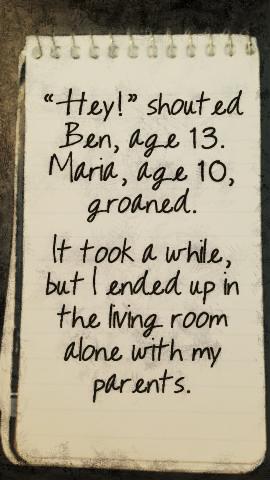 "Hey!" shouted
Ben, age 13.
Maria, age 10,
groaned.
It took a while,
but I ended up in
the living room
alone with my
parents.